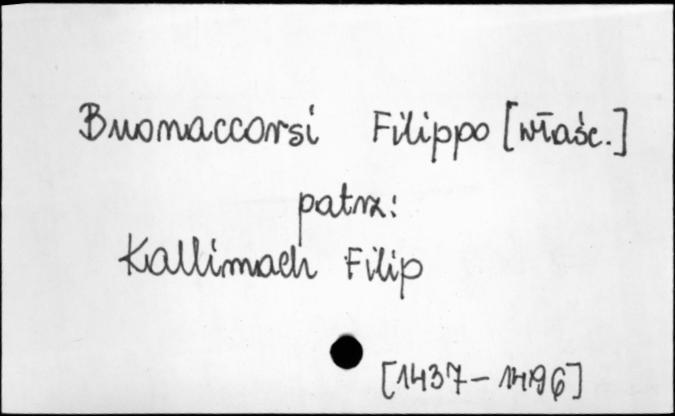 Buonaccorsi Filippo [właśc.]
patrz:
Kallimach Filip
[1437-1496]